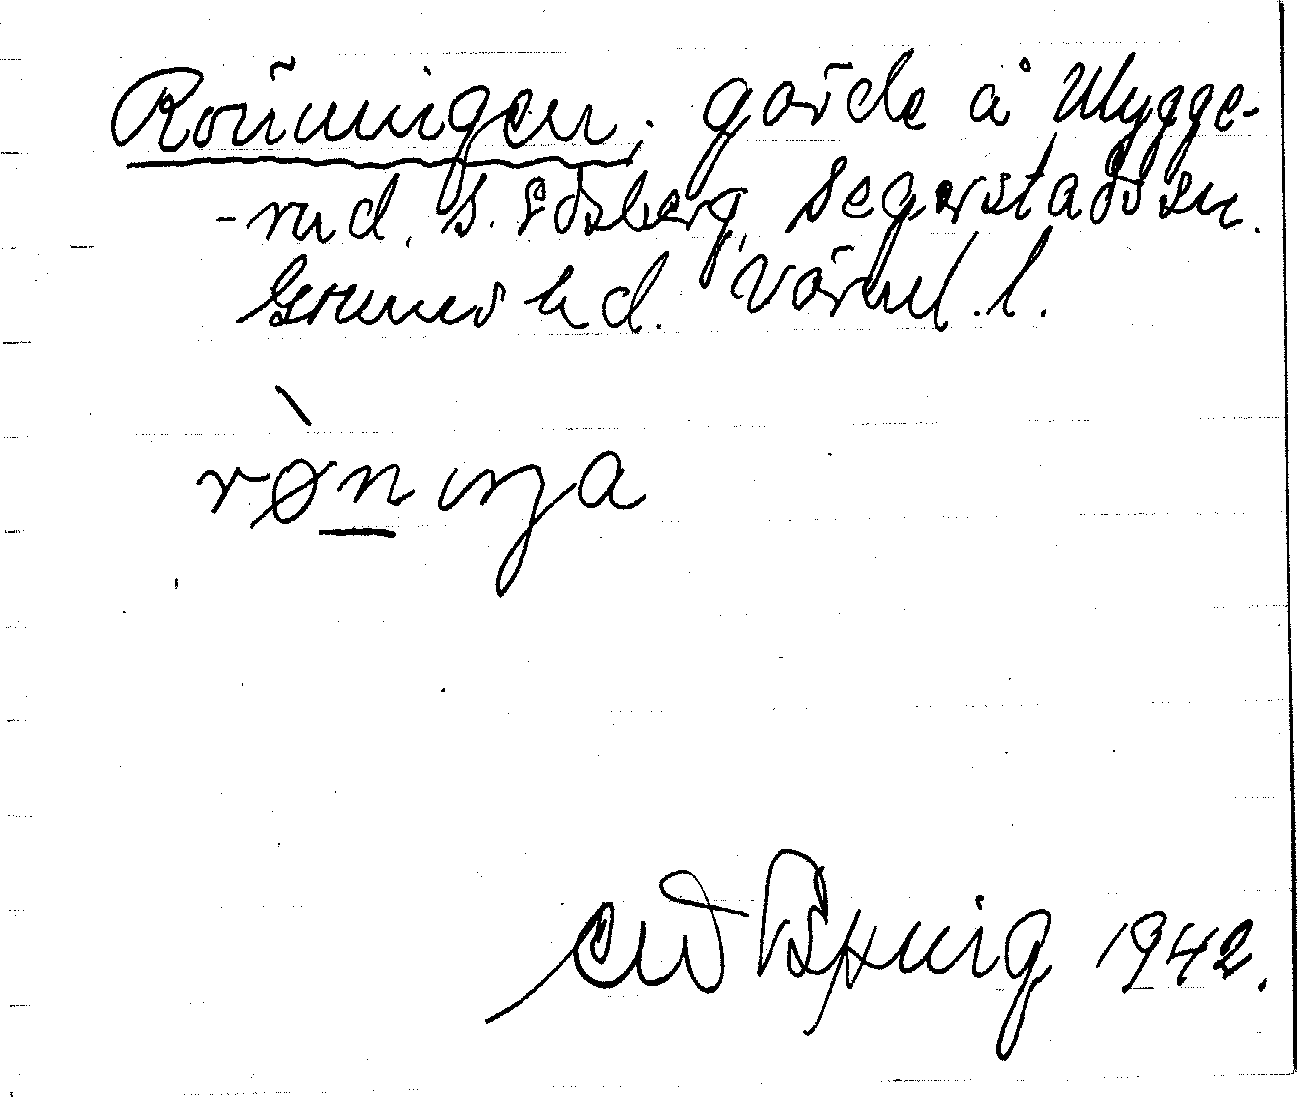 Rönningen, gärde å Mygge-
-rud, s. Edsberg, Segerstads sn.
Grums hd. Värml. l.
rø̀n ıŋa
1942.